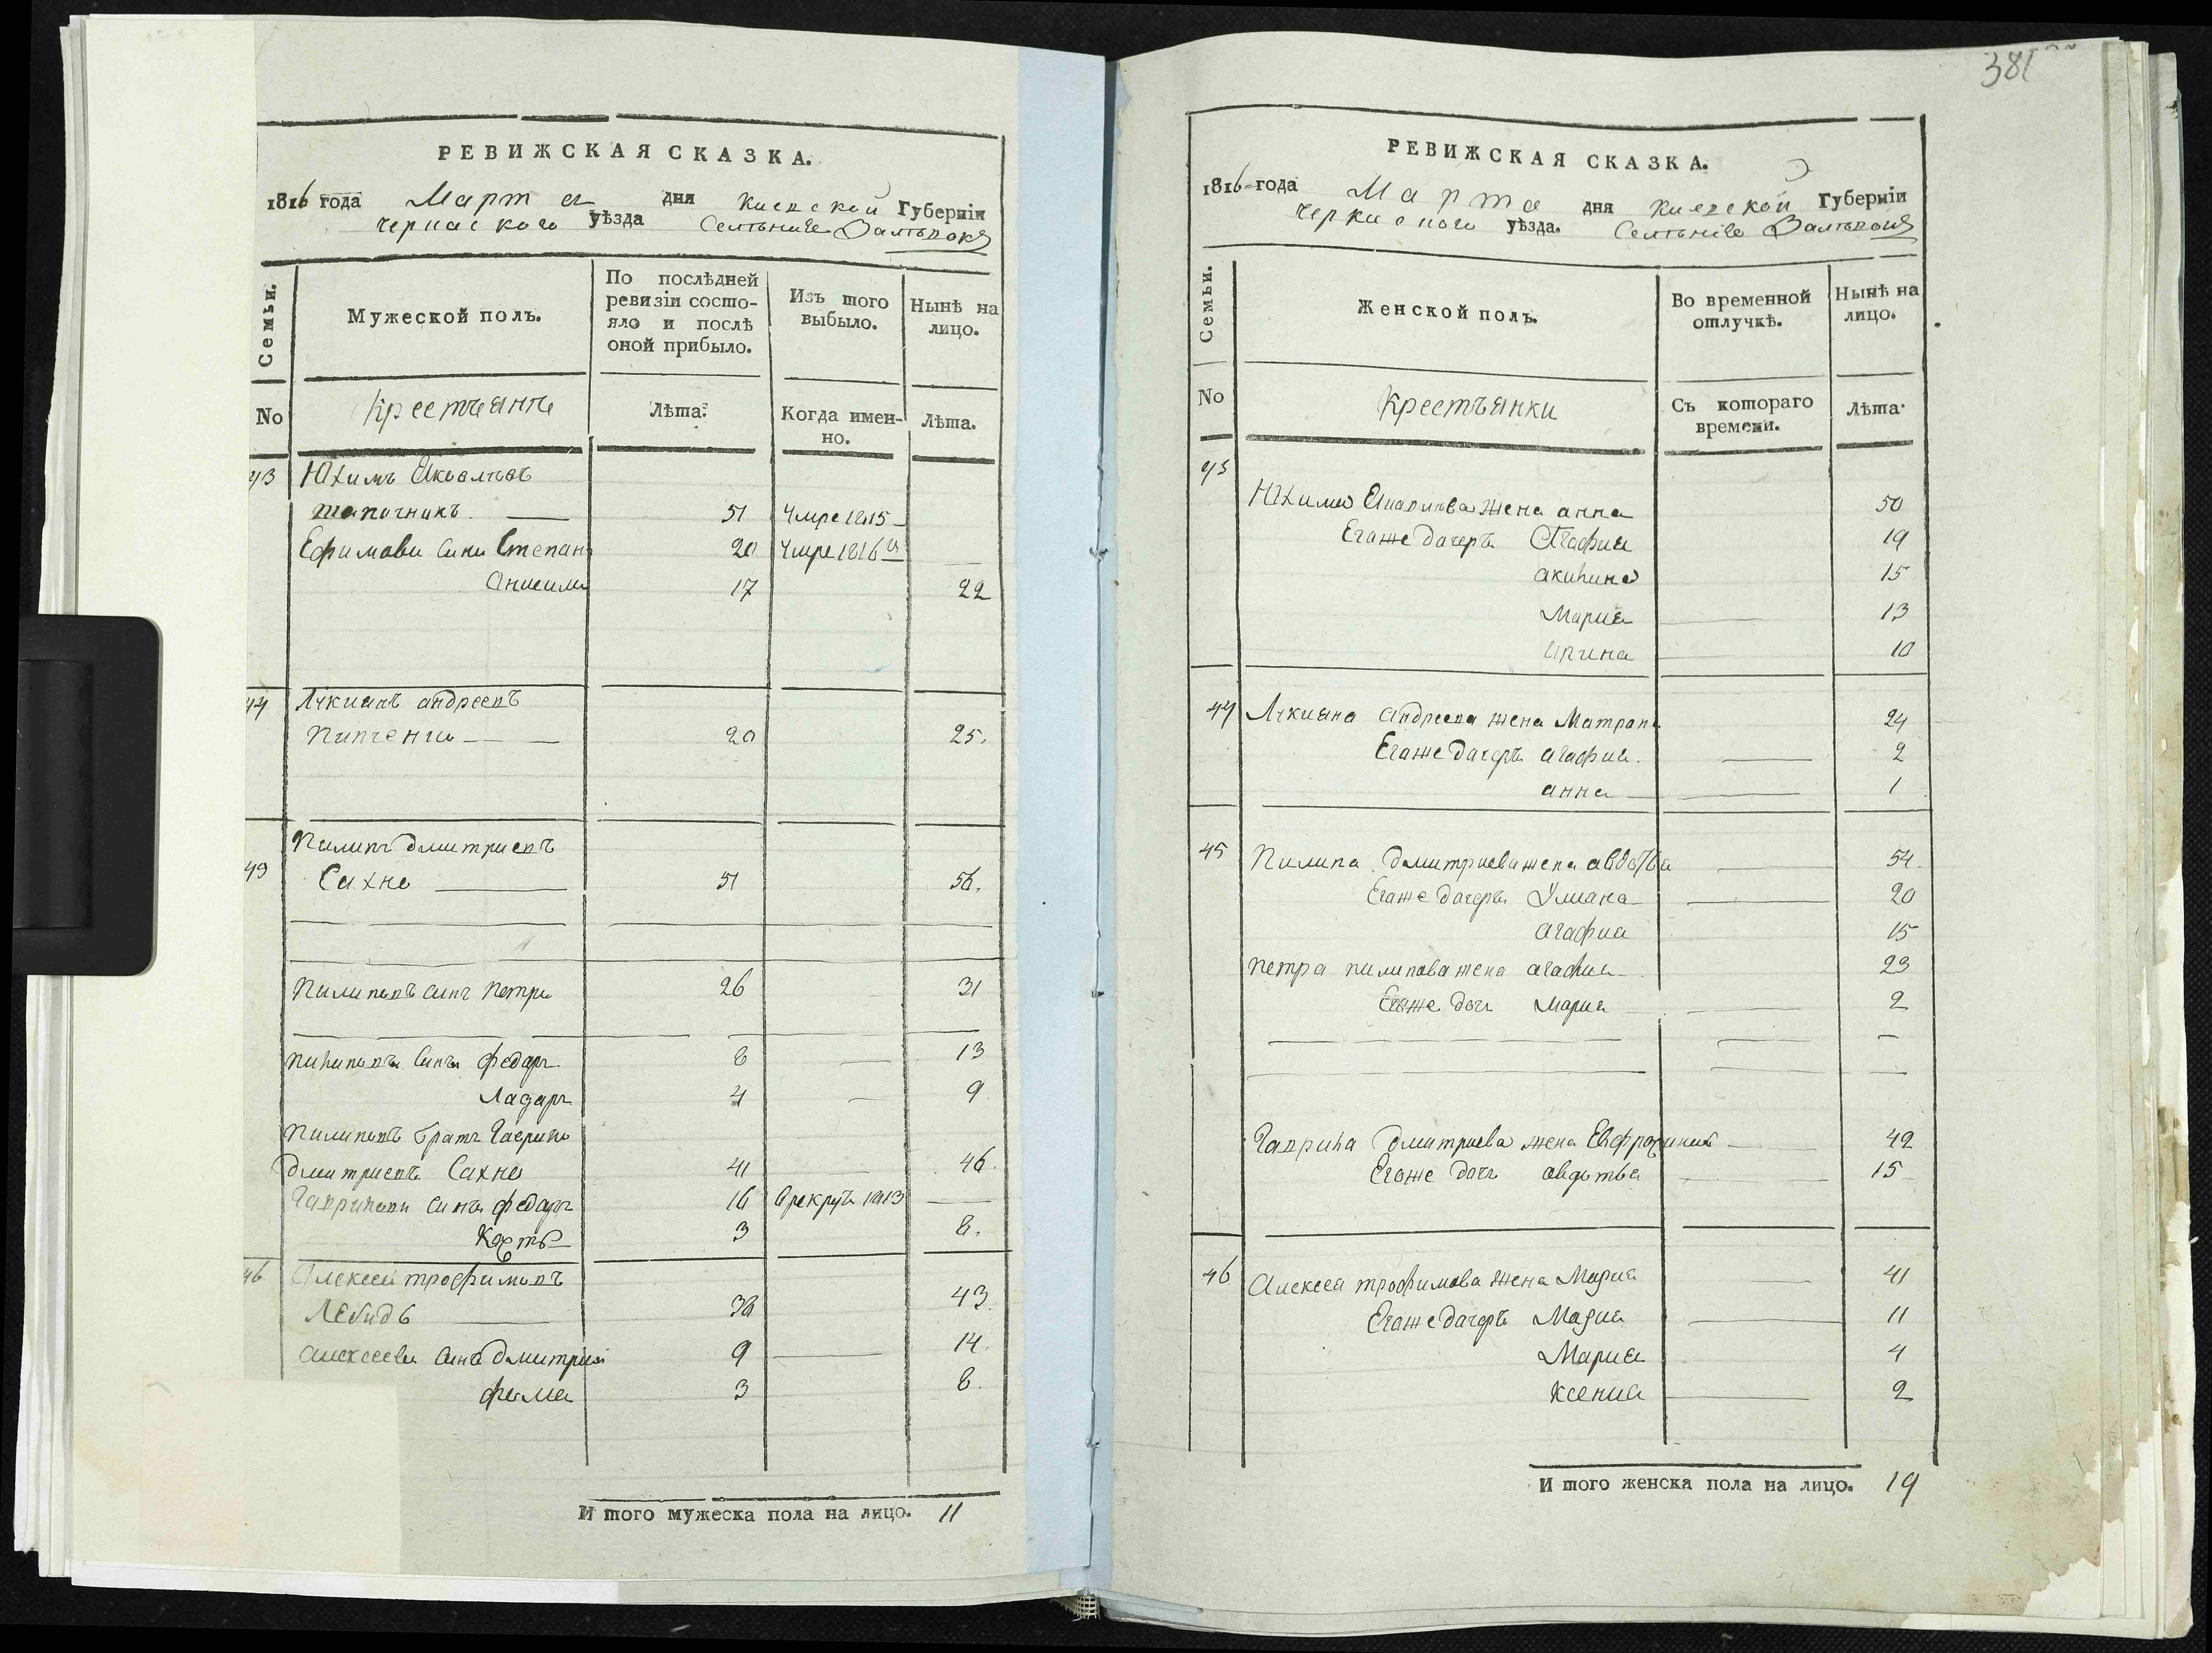 РЕВИЖСКАЯ СКАЗКА.
1816 года Марта дня Киевской Губерніи
Черкаского уѣзда
Семьи.
Мужеской полъ.
По послѣдней ревизіи состояло и послѣ оной прибыло.
Изъ того выбыло.
Нынѣ на лицо.
No
Крестъяне
Лѣта.
Когда именно.
Лѣта.
43 Юхимъ
51 Умре 1815
Ефимови сини Степанъ 20 Умре 1816
Анисимъ 17 22
44 Лукианъ андреевъ
20 25.
45 Пилипъ дмитриевъ
Сахно 51 56.
Пилиповъ синъ Петръ 26 31
Пилиповъ синъ федоръ 8 13
Лазаръ 4 9
Пилиповъ братъ Гаврило
дмитриевъ Сахно 41 46.
Гаврилови сини федоръ 16 Врекрутъ 1813
3 8.
46 Алексей трофимовъ
Лебидь 38 43.
алексееви сини дмитрий 9 14.
фома 3 8.
И того мужеска пола на лицо. 11
381
РЕВИЖСКАЯ СКАЗКА.
1816 года Марта дня Киевской Губерніи
Черкаского уѣзда.
Семьи.
Женской полъ.
Во временной отлучкѣ.
Нынѣ на лицо.
No
Крестъянки
Съ котораго времени.
Лѣта.
43
Юхима жена анна 50
Егоже дочеръ Агафия 19
акилина 15
Мария 13
ирина 10
44 Лукиана андреева жена Матрона 24
Егоже дочеръ агафия. 2
анна 1
45 Пилипа дмитриева жена авдотъа 54.
Егоже дочеръ Улиана 20
агафия 15
Петра пилипова жена агафия 23
Егоже дочъ Мария 2
Гаврила дмитриева жена Евфросиния 42
Егоже дочъ авдотъа 15
46 Алексея трофимова жена Мария 41
Егоже дочеръ Мария 11
Мария 4
Ксения 2
И того женска пола на лицо. 19